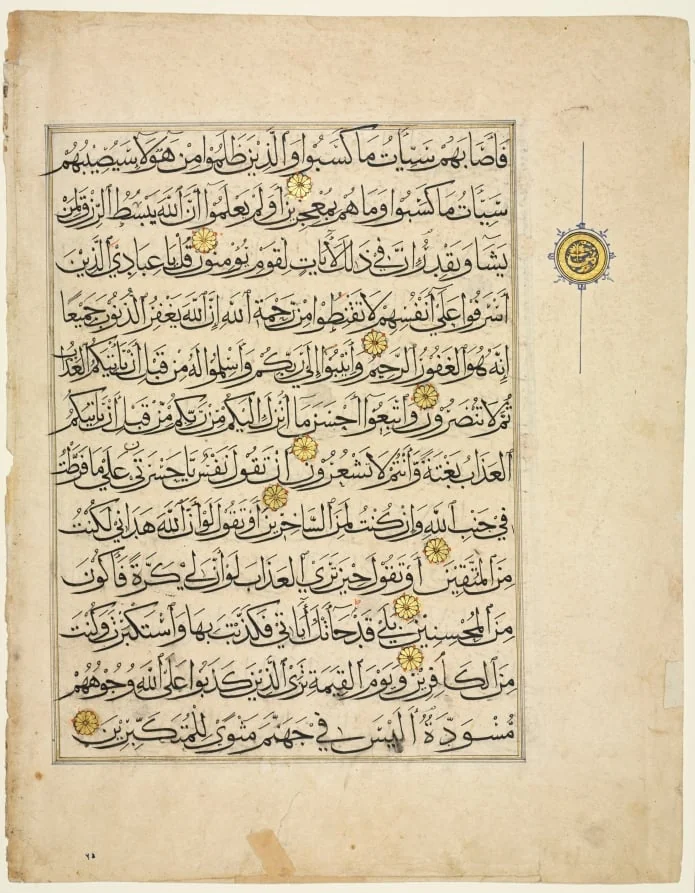 فَأَصَابَهُمْ سَيِّـَٔاتُ مَا كَسَبُوا وَالَّذِينَ ظَلَمُوا مِنْ هَؤُلَاءِ سَيُصِيبُهُمْ
سَيِّـَٔاتُ مَا كَسَبُوا وَمَا هُمْ بِمُعْجِزِينَ أَوَلَمْ يَعْلَمُوا أَنَّ اللَّهَ يَبْسُطُ الرِّزْقَ لِمَنْ
يَشَاءُ وَيَقْدِرُ إِنَّ فِي ذَلِكَ لَآيَاتٍ لِقَوْمٍ يُؤْمِنُونَ قُلْ يَا عِبَادِيَ الَّذِينَ
أَسْرَفُوا عَلَى أَنْفُسِهِمْ لَا تَقْنَطُوا مِنْ رَحْمَةِ اللَّهِ إِنَّ اللَّهَ يَغْفِرُ الذُّنُوبَ جَمِيعًا
إِنَّهُ هُوَ الْغَفُورُ الرَّحِيمُ وَأَنِيبُوا إِلَى رَبِّكُمْ وَأَسْلِمُوا لَهُ مِنْ قَبْلِ أَنْ يَأْتِيَكُمُ الْعَذَابُ
ثُمَّ لَا تُنْصَرُونَ وَاتَّبِعُوا أَحْسَنَ مَا أُنْزِلَ إِلَيْكُمْ مِنْ رَبِّكُمْ مِنْ قَبْلِ أَنْ يَأْتِيَكُمُ
الْعَذَابُ بَغْتَةً وَأَنْتُمْ لَا تَشْعُرُونَ أَنْ تَقُولَ نَفْسٌ يَا حَسْرَتَى عَلَى مَا فَرَّطْتُ
فِي جَنْبِ اللَّهِ وَإِنْ كُنْتُ لَمِنَ السَّاخِرِينَ أَوْ تَقُولَ لَوْ أَنَّ اللَّهَ هَدَانِي لَكُنْتُ
مِنَ الْمُتَّقِينَ أَوْ تَقُولَ حِينَ تَرَى الْعَذَابَ لَوْ أَنَّ لِي كَرَّةً فَأَكُونَ
مِنَ الْمُحْسِنِينَ بَلَى قَدْ جَاءَتْكَ آيَاتِي فَكَذَّبْتَ بِهَا وَاسْتَكْبَرْتَ وَكُنْتَ
مِنَ الْكَافِرِينَ وَيَوْمَ الْقِيَمَةِ تَرَى الَّذِينَ كَذَبُوا عَلَى اللَّهِ وُجُوهُهُمْ
مُسْوَدَّةٌ أَلَيْسَ فِي جَهَنَّمَ مَثْوًى لِلْمُتَكَبِّرِينَ
٦٥